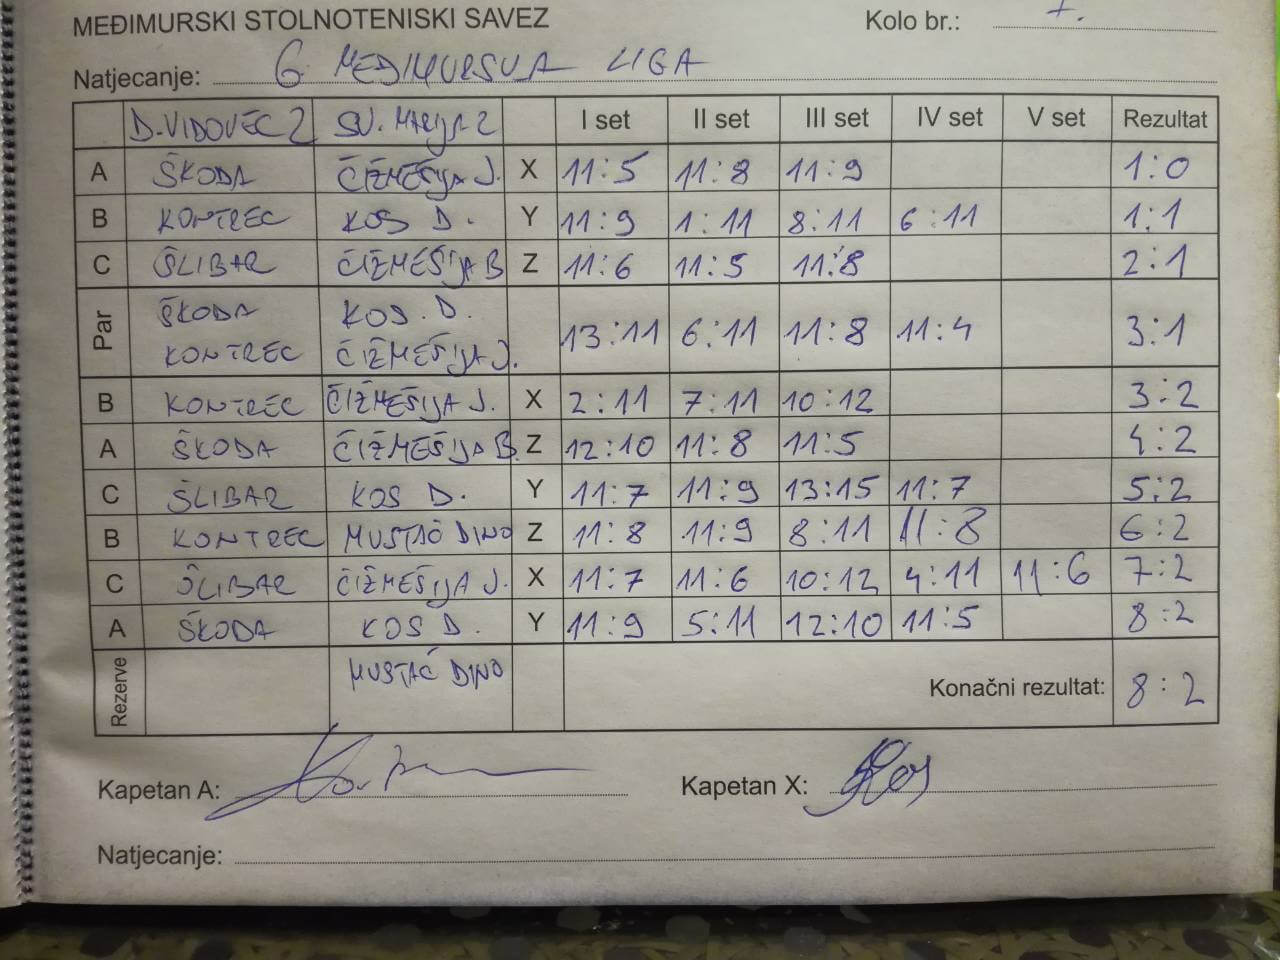 MEĐIMURSKI STOLNOTENISKI SAVEZ Kolo br.: 7.
Natjecanje: 6. MEĐIMURSKA LIGA
D. VIDOVEC 2 SV. MARIJA 2 I set II set III set IV set V set Rezultat
A ŠKODA ČIŽMEŠIJA J. X 11:5 11:8 11:9 1:0
B KONTREC KOS D. Y 11:9 1:11 8:11 6:11 1:1
C ŠLIBAR ČIŽMEŠIJA B Z 11:6 11:5 11:8 2:1
Par ŠKODA KOS. D. 13:11 6:11 11:8 11:4 3:1
KONTREC ČIŽMEŠIJA J.
B KONTREC ČIŽMEŠIJA J. X 2:11 7:11 10:12 3:2
A ŠKODA ČIŽMEŠIJA B. Z 12:10 11:8 11:5 4:2
C ŠLIBAR KOS D. Y 11:7 11:9 13:15 11:7 5:2
B KONTREC MUSTAČ DINO Z 11:8 11:9 8:11 11:8 6:2
C ŠLIBAR ČIŽMEŠIJA J. X 11:7 11:6 10:12 4:11 11:6 7:2
A ŠKODA KOS D. Y 11:9 5:11 12:10 11:5 8:2
Rezerve MUSTAČ DINO Konačni rezultat: 8:2
Kapetan A: Kapetan X: Kos
Natjecanje: